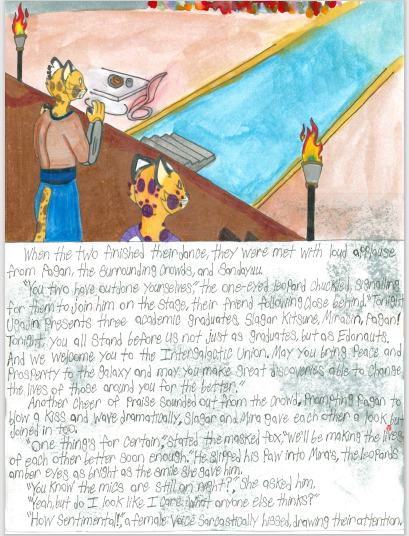 When the two finished their dance, they were met with loud applause
from Pagan, the surrounding crowds, and Sandayuu.
"You two have outdone yourselves," the one-eyed leopard chuckled, signaling
for them to join him on the stage, their friend following close behind. "Tonight
Ugadin presents three academic graduates, Slagar Kitsune, Miradin, Pagan!
Tonight, you all stand before us not just as graduates, but as Edonauts.
And we welcome you to the Intergalactic Union. May you bring Peace and
Prosperity to the galaxy and may you make great discoveries able to change
the lives of those around you for the better."
Another cheer of praise sounded out from the crowd, prompting Pagan to
blow a kiss and wave dramatically. Slagar and Mira gave each other a look but
joined in too.
"One things for certain," stated the masked fox, "we'll be making the lives
of each other better soon enough." He slipped his paw into Mira's, the leopards
amber eyes as bright as the smile she gave him.
"You know the mics are still on right?" She asked him.
"Yeah, but do I look like I care what anyone else thinks?"
"How sentimental!", a female voice sarcastically hissed, drawing their attention.